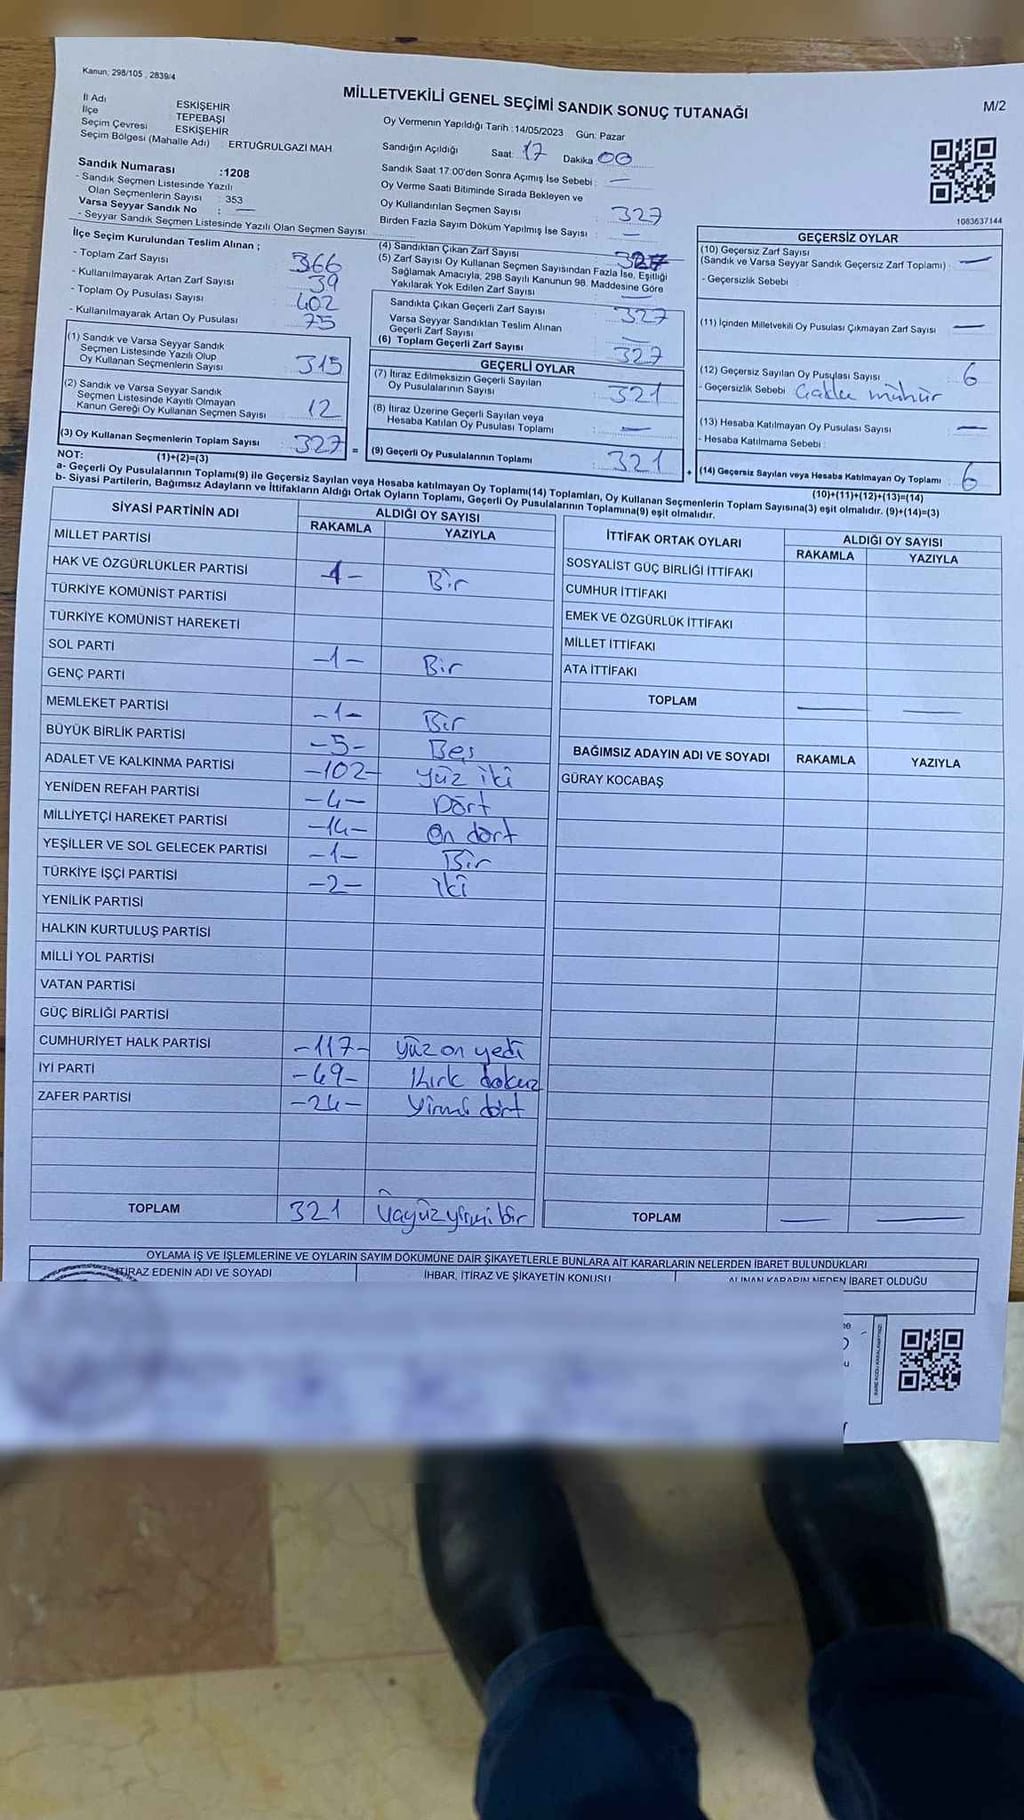 Kanun; 298/105 , 2839/4
MİLLETVEKİLİ GENEL SEÇİMİ SANDIK SONUÇ TUTANAĞI
M/2
İl Adı ESKİŞEHİR
İlçe TEPEBAŞI
Seçim Çevresi ESKİŞEHİR
Seçim Bölgesi (Mahalle Adı) : ERTUĞRULGAZİ MAH.
Sandık Numarası :1208
- Sandık Seçmen Listesinde Yazılı
Olan Seçmenlerin Sayısı : 353
Varsa Seyyar Sandık No : —
- Seyyar Sandık Seçmen Listesinde Yazılı Olan Seçmen Sayısı:
Oy Vermenin Yapıldığı Tarih :14/05/2023 Gün: Pazar
Sandığın Açıldığı Saat: 17 Dakika 00
Sandık Saat 17:00'den Sonra Açımış İse Sebebi : —
Oy Verme Saati Bitiminde Sırada Bekleyen ve
Oy Kullandırılan Seçmen Sayısı : 327
Birden Fazla Sayım Döküm Yapılmış İse Sayısı : —
1083637144
İlçe Seçim Kurulundan Teslim Alınan ;
- Toplam Zarf Sayısı : 366
- Kullanılmayarak Artan Zarf Sayısı : 39
- Toplam Oy Pusulası Sayısı : 402
- Kullanılmayarak Artan Oy Pusulası : 75
(1) Sandık ve Varsa Seyyar Sandık
Seçmen Listesinde Yazılı Olup
Oy Kullanan Seçmenlerin Sayısı : 315
(2) Sandık ve Varsa Seyyar Sandık
Seçmen Listesinde Kayıtlı Olmayan
Kanun Gereği Oy Kullanan Seçmen Sayısı : 12
(3) Oy Kullanan Seçmenlerin Toplam Sayısı : 327 =
(1)+(2)=(3)
(4) Sandıktan Çıkan Zarf Sayısı : 327
(5) Zarf Sayısı Oy Kullanan Seçmen Sayısından Fazla İse, Eşitliği
Sağlamak Amacıyla, 298 Sayılı Kanunun 98. Maddesine Göre
Yakılarak Yok Edilen Zarf Sayısı : —
Sandıkta Çıkan Geçerli Zarf Sayısı : 327
Varsa Seyyar Sandıktan Teslim Alınan
Geçerli Zarf Sayısı : —
(6) Toplam Geçerli Zarf Sayısı : 327
GEÇERLİ OYLAR
(7) İtiraz Edilmeksizin Geçerli Sayılan
Oy Pusulalarının Sayısı : 321
(8) İtiraz Üzerine Geçerli Sayılan veya
Hesaba Katılan Oy Pusulası Toplamı : —
(9) Geçerli Oy Pusulalarının Toplamı : 321 +
GEÇERSİZ OYLAR
(10) Geçersiz Zarf Sayısı
(Sandık ve Varsa Seyyar Sandık Geçersiz Zarf Toplamı) : —
- Geçersizlik Sebebi :
(11) İçinden Milletvekili Oy Pusulası Çıkmayan Zarf Sayısı : —
(12) Geçersiz Sayılan Oy Pusulası Sayısı : 6
- Geçersizlik Sebebi : mühür
(13) Hesaba Katılmayan Oy Pusulası Sayısı : —
- Hesaba Katılmama Sebebi :
(14) Geçersiz Sayılan veya Hesaba Katılmayan Oy Toplamı : 6
(10)+(11)+(12)+(13)=(14)
NOT:
a- Geçerli Oy Pusulalarının Toplamı(9) ile Geçersiz Sayılan veya Hesaba katılmayan Oy Toplamı(14) Toplamları, Oy Kullanan Seçmenlerin Toplam Sayısına(3) eşit olmalıdır. (9)+(14)=(3)
b- Siyasi Partilerin, Bağımsız Adayların ve İttifakların Aldığı Ortak Oyların Toplamı, Geçerli Oy Pusulalarının Toplamına(9) eşit olmalıdır.
SİYASİ PARTİNİN ADI ALDIĞI OY SAYISI
RAKAMLA YAZIYLA
MİLLET PARTİSİ
HAK VE ÖZGÜRLÜKLER PARTİSİ -1- Bir
TÜRKİYE KOMÜNİST PARTİSİ
TÜRKİYE KOMÜNİST HAREKETİ
SOL PARTİ -1- Bir
GENÇ PARTİ
MEMLEKET PARTİSİ -1- Bir
BÜYÜK BİRLİK PARTİSİ -5- Beş
ADALET VE KALKINMA PARTİSİ -102- yüz iki
YENİDEN REFAH PARTİSİ -4- Dört
MİLLİYETÇİ HAREKET PARTİSİ -14- On dört
YEŞİLLER VE SOL GELECEK PARTİSİ -1- Bir
TÜRKİYE İŞÇİ PARTİSİ -2- iki
YENİLİK PARTİSİ
HALKIN KURTULUŞ PARTİSİ
MİLLİ YOL PARTİSİ
VATAN PARTİSİ
GÜÇ BİRLİĞİ PARTİSİ
CUMHURİYET HALK PARTİSİ -117- yüz on yedi
İYİ PARTİ -49- Kırk dokuz
ZAFER PARTİSİ -24- Yirmi dört
TOPLAM 321 Üçyüzyirmi bir
İTTİFAK ORTAK OYLARI ALDIĞI OY SAYISI
RAKAMLA YAZIYLA
SOSYALİST GÜÇ BİRLİĞİ İTTİFAKI
CUMHUR İTTİFAKI
EMEK VE ÖZGÜRLÜK İTTİFAKI
MİLLET İTTİFAKI
ATA İTTİFAKI
TOPLAM — —
BAĞIMSIZ ADAYIN ADI VE SOYADI RAKAMLA YAZIYLA
GÜRAY KOCABAŞ
TOPLAM — —
OYLAMA İŞ VE İŞLEMLERİNE VE OYLARIN SAYIM DÖKÜMÜNE DAİR ŞİKAYETLERLE BUNLARA AİT KARARLARIN NELERDEN İBARET BULUNDUKLARI
İTİRAZ EDENİN ADI VE SOYADI İHBAR, İTİRAZ VE ŞİKAYETİN KONUSU ALINAN KARARIN NEDEN İBARET OLDUĞU